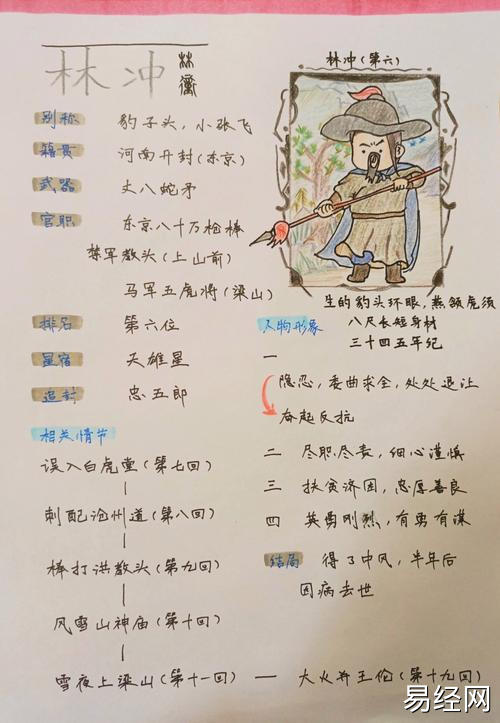 林冲 林衝
别称 豹子头，小张飞
籍贯 河南开封(东京)
武器 丈八蛇矛
官职 东京八十万枪棒
禁军教头(上山前)
马军五虎将(梁山)
排名 第六位
星宿 天雄星
追封 忠五郎
相关情节
误入白虎堂(第七回)
刺配沧州道(第八回)
棒打洪教头(第九回)
风雪山神庙(第十回)
雪夜上梁山(第十一回) — 大火并王伦(第十九回)
林冲(第六)
生的豹头环眼，燕颔虎须
八尺长短身材
三十四五年纪
人物形象
一
隐忍，委曲求全，处处退让
奋起反抗
二 尽职尽责，细心谨慎
三 扶贫济困，忠厚善良
四 英勇刚烈，有勇有谋
结局 得了中风，半年后
因病去世
易经网